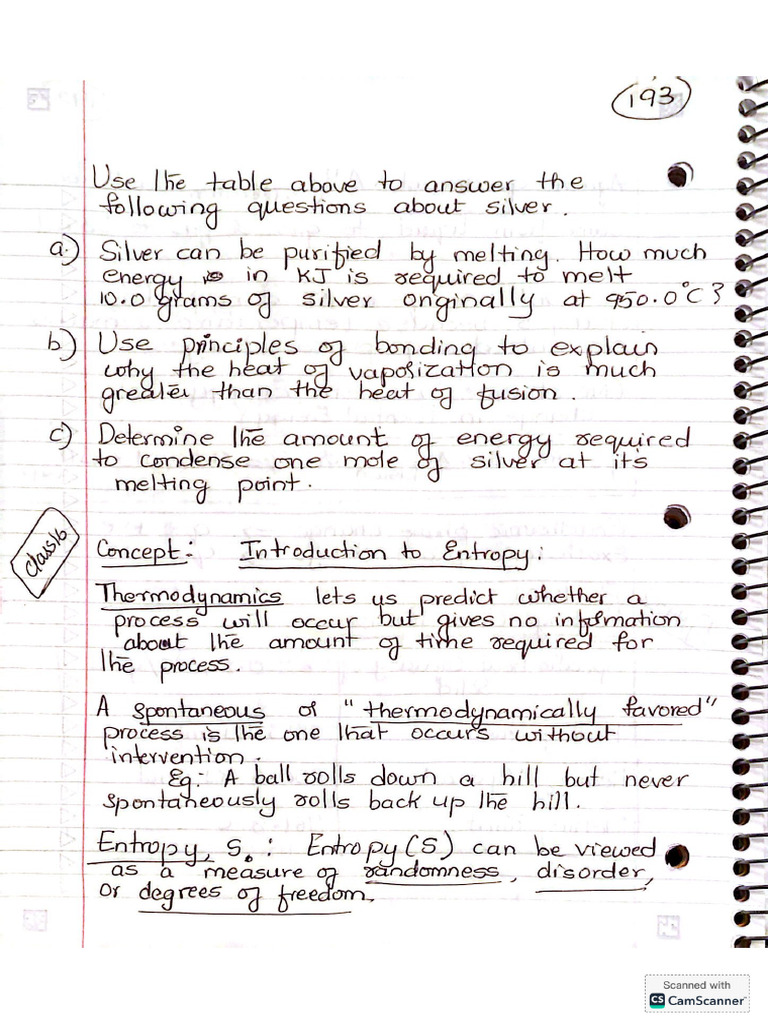 193
Use the table above to answer the
following questions about silver.
a.) Silver can be purified by melting. How much
energy in KJ is required to melt
10.0 grams of silver originally at 950.0°C?
b) Use principles of bonding to explain
why the heat of vaporization is much
greater than the heat of fusion.
c) Determine the amount of energy required
to condense one mole of silver at its
melting point.
Class 16
Concept: Introduction to Entropy:
Thermodynamics lets us predict whether a
process will occur but gives no information
about the amount of time required for
the process.
A spontaneous or "thermodynamically favored"
process is the one that occurs without
intervention.
Eg: A ball rolls down a hill but never
spontaneously rolls back up the hill.
Entropy, S.: Entropy(S) can be viewed
as a measure of randomness, disorder,
or degrees of freedom.
Scanned with
CS CamScanner